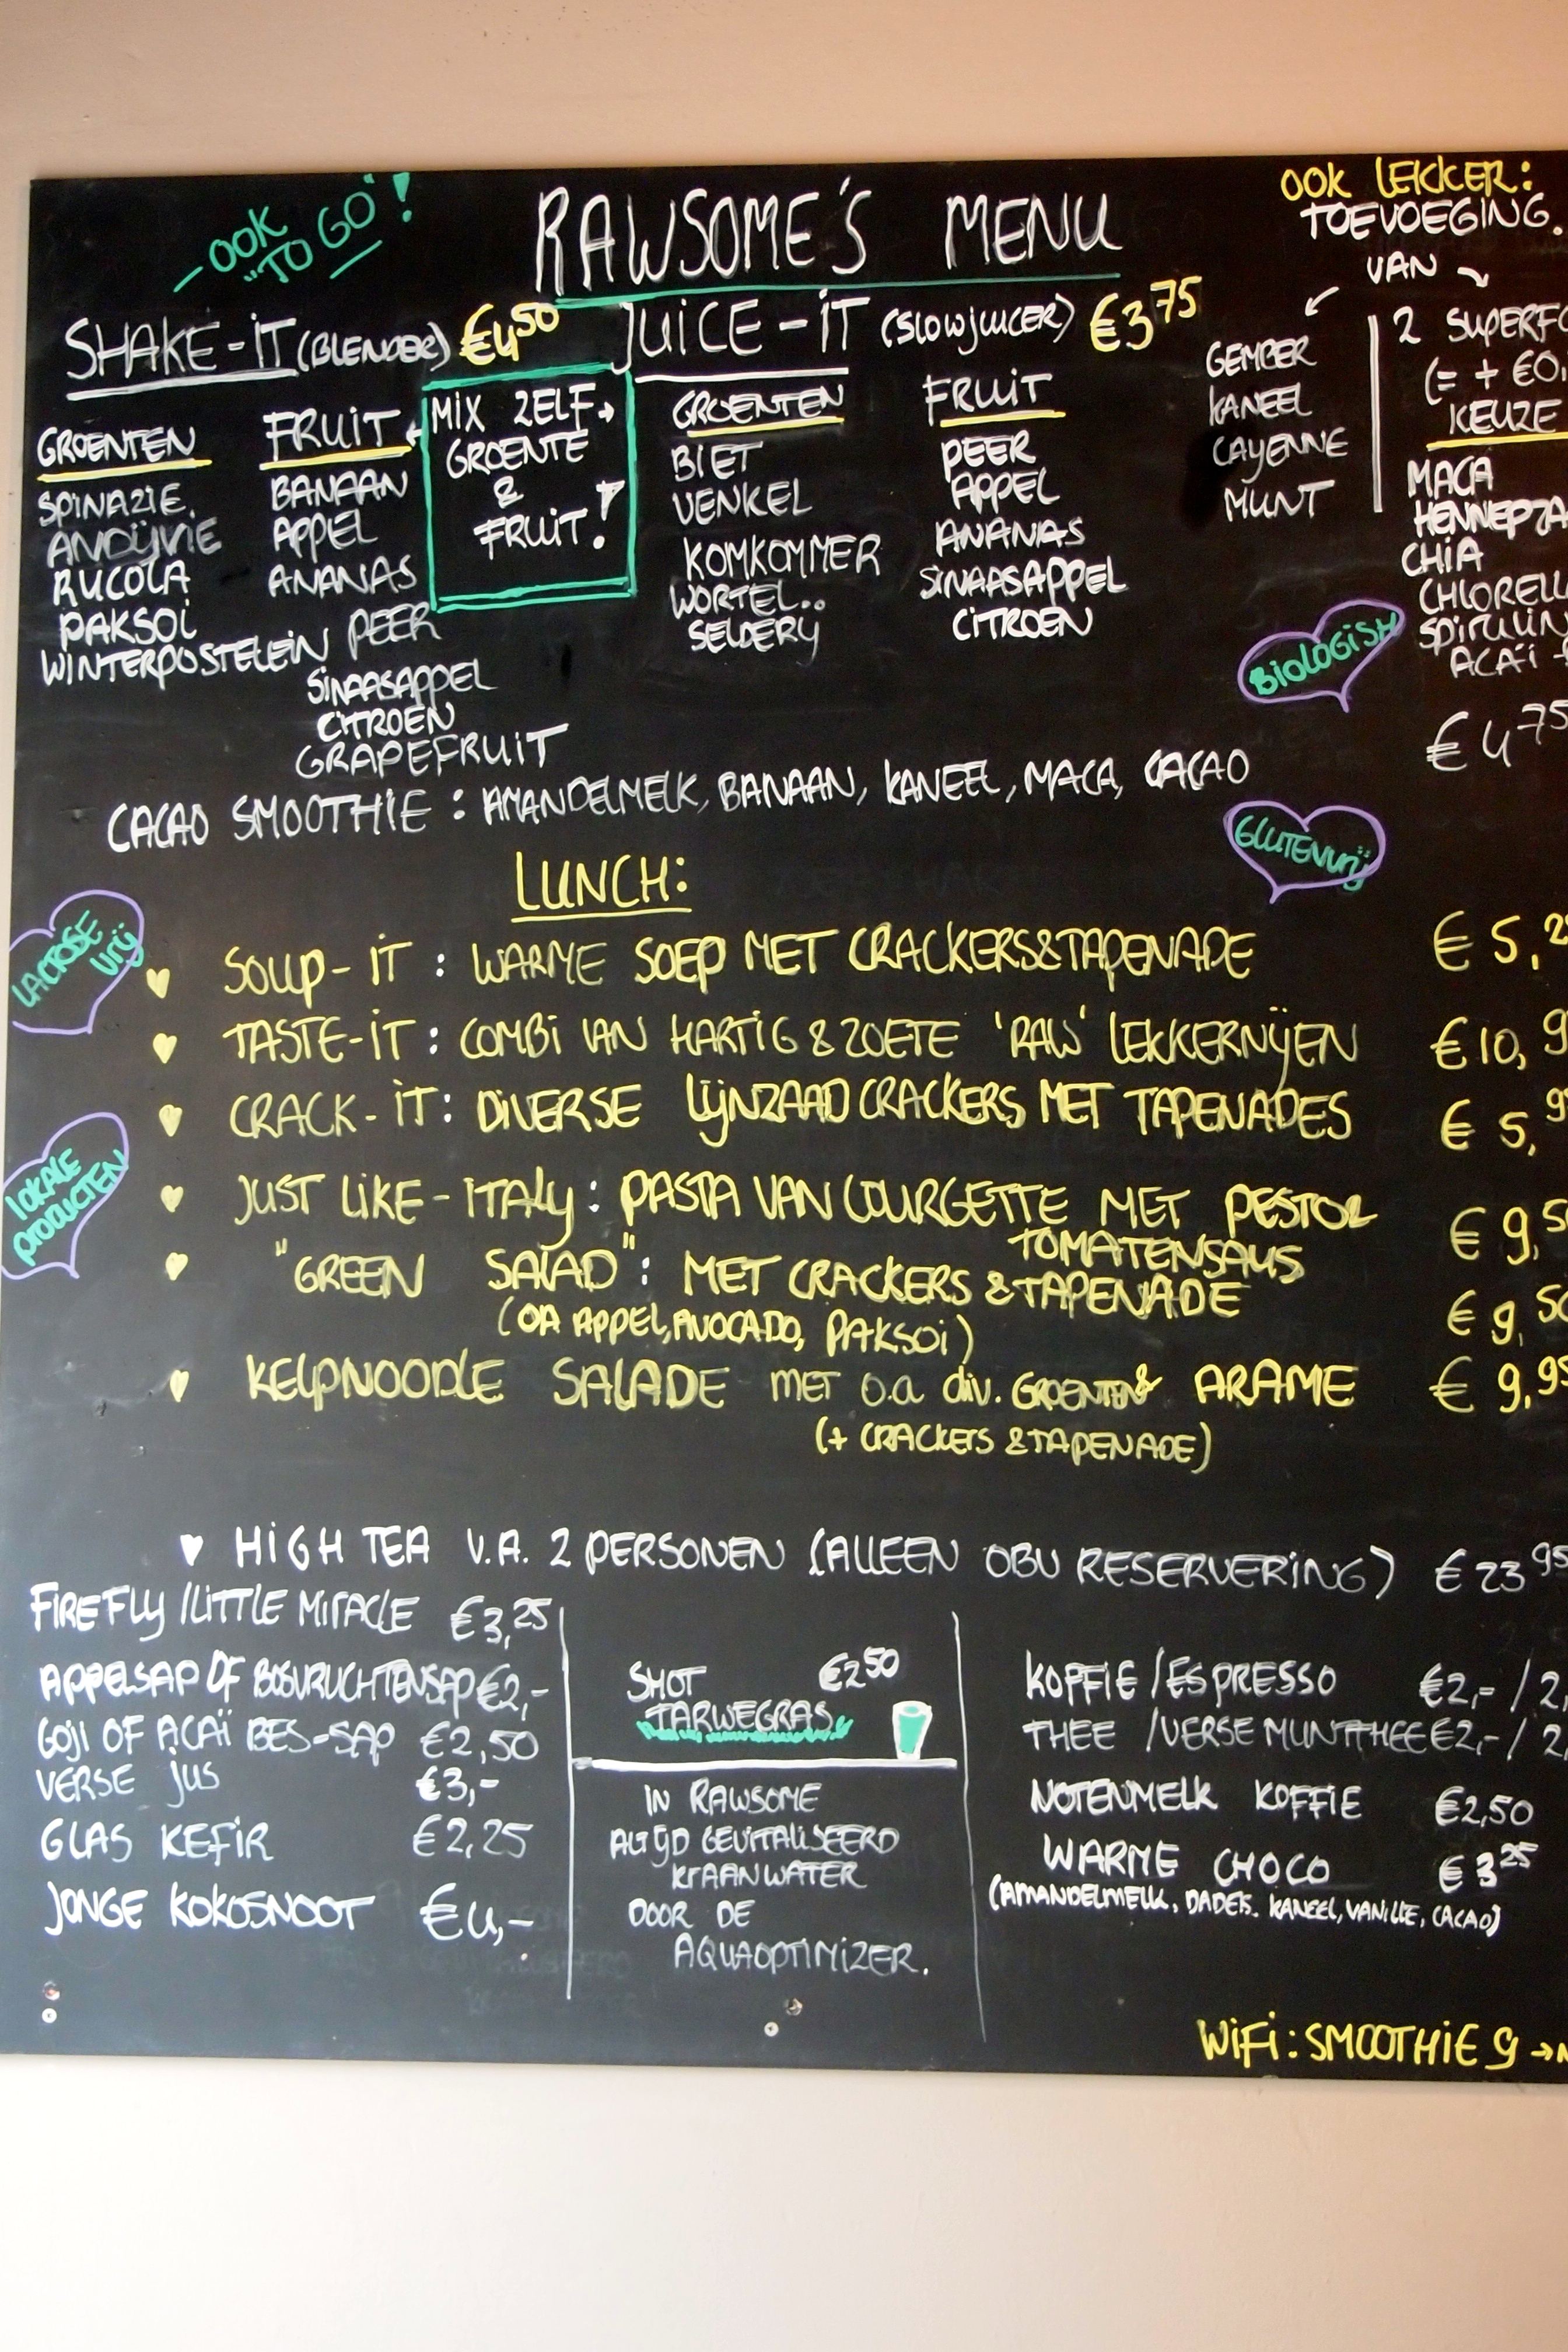 OOK
"TO GO"!
RAWSOME'S MENU
OOK LEKKER:
TOEVOEGING
VAN
SHAKE-IT (BLENDER) €4,50
GROENTEN
SPINAZIE
ANDIJVIE
RUCOLA
PAKSOI
WINTERPOSTELEIN
FRUIT
BANAAN
APPEL
ANANAS
PEER
SINAASAPPEL
CITROEN
GRAPEFRUIT
MIX ZELF
GROENTE
&
FRUIT!
JUICE-IT (SLOWJUICER) €3 75
GROENTEN
BIET
VENKEL
KOMKOMMER
WORTEL..
SELDERY
FRUIT
PEER
APPEL
ANANAS
SINAASAPPEL
CITROEN
GEMBER
KANEEL
CAYENNE
MUNT
2
(= + €0,
KEUZE
MACA
CHIA
BIOLOGISH
€ 4 75
CACAO SMOOTHIE: AMANDELMELK, BANAAN, KANEEL, MACA, CACAO
GLUTENvrij
LUNCH:
LACTOSE
vrij
SOUP-IT: WARME SOEP MET CRACKERS & TAPENADE € 5,2
TASTE-IT: COMBI VAN HARTIG & ZOETE 'RAW' LEKKERNIJEN € 10,9
CRACK-IT: DIVERSE LIJNZAAD CRACKERS MET TAPENADES € 5,9
lOKALE
producten
JUST LIKE-ITALY: PASTA VAN COURGETTE MET PESTO & € 9,5
TOMATENSAUS
"GREEN SALAD": MET CRACKERS & TAPENADE € 9,50
(OA APPEL, AVOCADO, PAKSOI)
KELPNOODLE SALADE MET o.a div. GROENTEN & ARAME € 9,95
(+ CRACKERS & TAPENADE)
HIGH TEA V.A. 2 PERSONEN (ALLEEN OBV RESERVERING) € 23 95
FIREFLY/LITTLE MIRACLE €3,25
APPELSAP OF BOSVRUCHTENSAP €2,-
GOJI OF ACAÏ BES-SAP €2,50
VERSE JUS €3,-
GLAS KEFIR €2,25
JONGE KOKOSNOOT €4,-
SHOT €2 50
TARWEGRAS
IN RAWSOME
ALTIJD GEVITALISEERD
KRAANWATER
DOOR DE
AQUAOPTIMIZER.
KOFFIE/ESPRESSO €2,-/2
THEE/VERSE MUNTTHEE €2,-/2,
NOTENMELK KOFFIE €2,50
WARME CHOCO € 3 25
(AMANDELMELK, DADELS, KANEEL, VANILLE, CACAO)
WiFi: SMOOTHIE 9